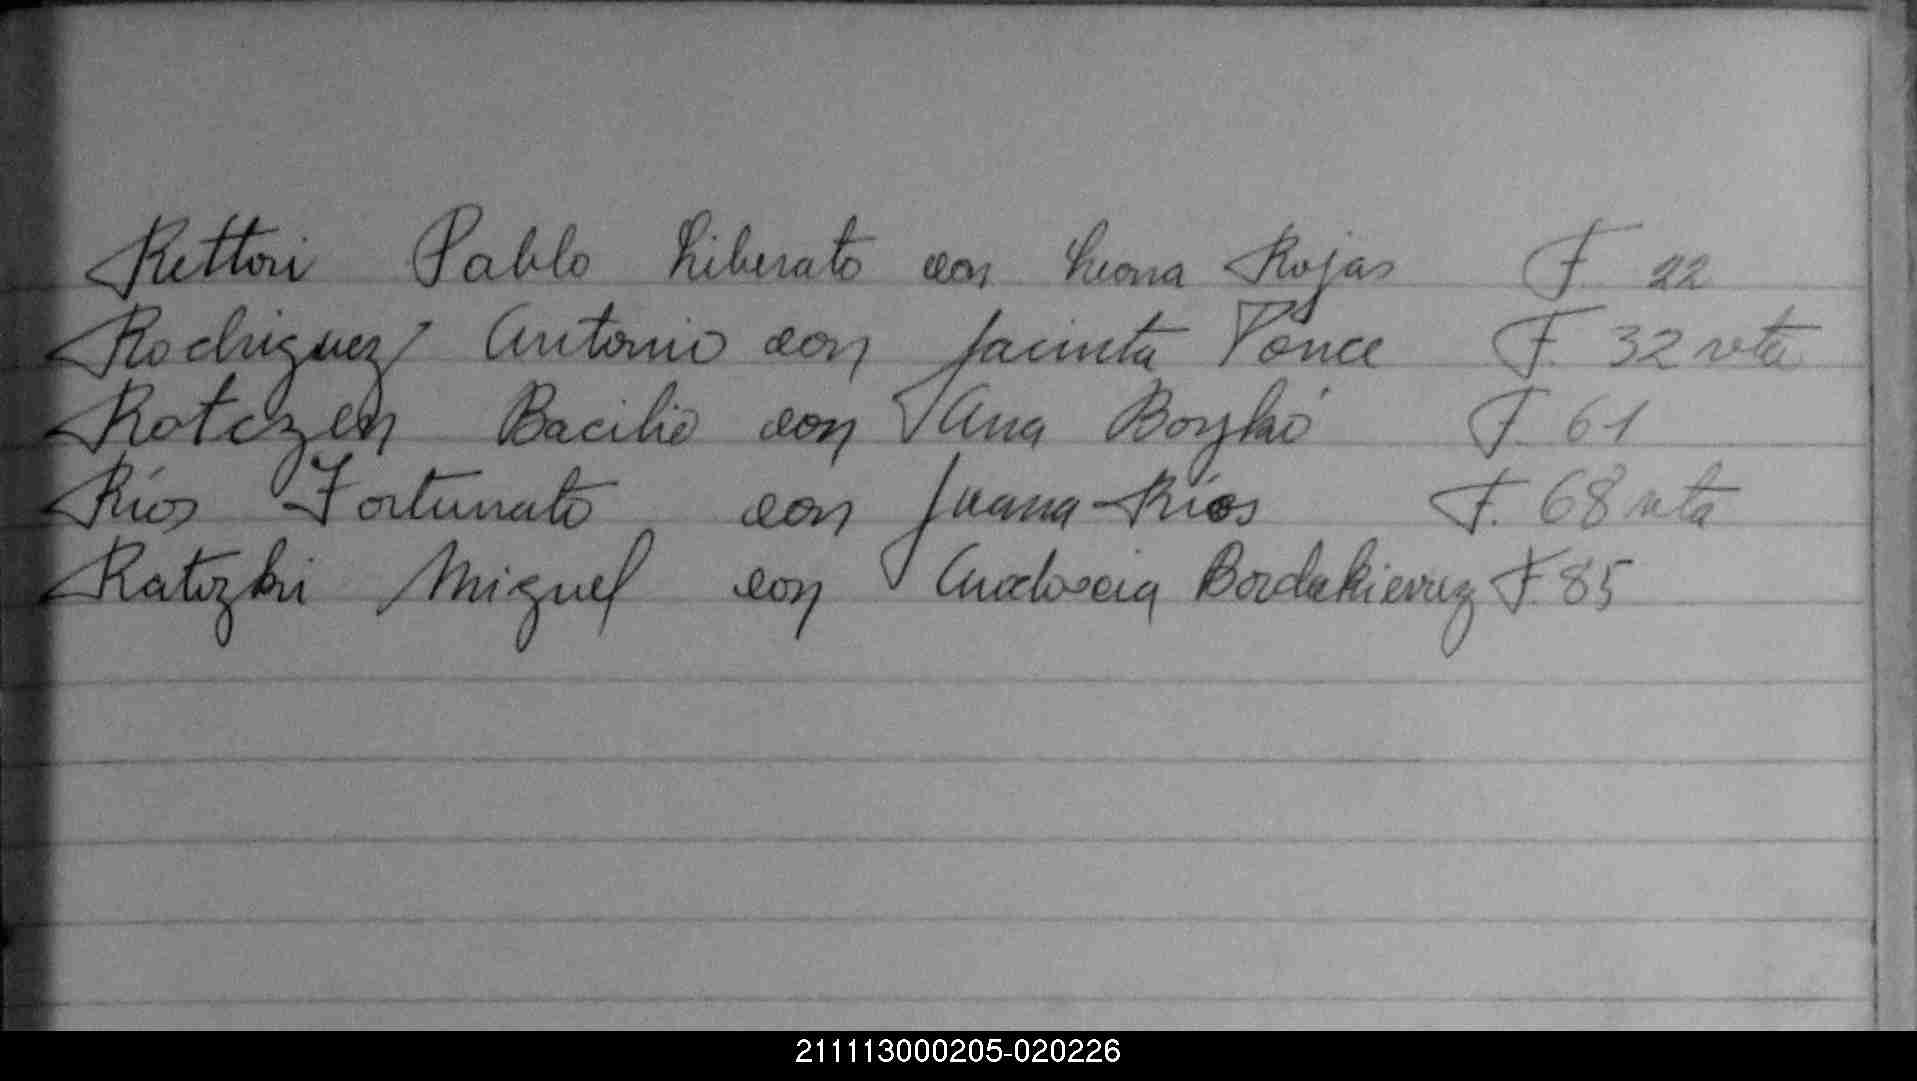 Rettori Pablo Liberato con Leona Rojas F. 22
Rodriguez Antonio con Jacinta Ponce F. 32 vta
Rotczen Bacilio con Ana Boyko F. 61
Ríos Fortunato con Juana Ríos F. 68 vta
Ratozki Miguel con F. 85
211113000205-020226